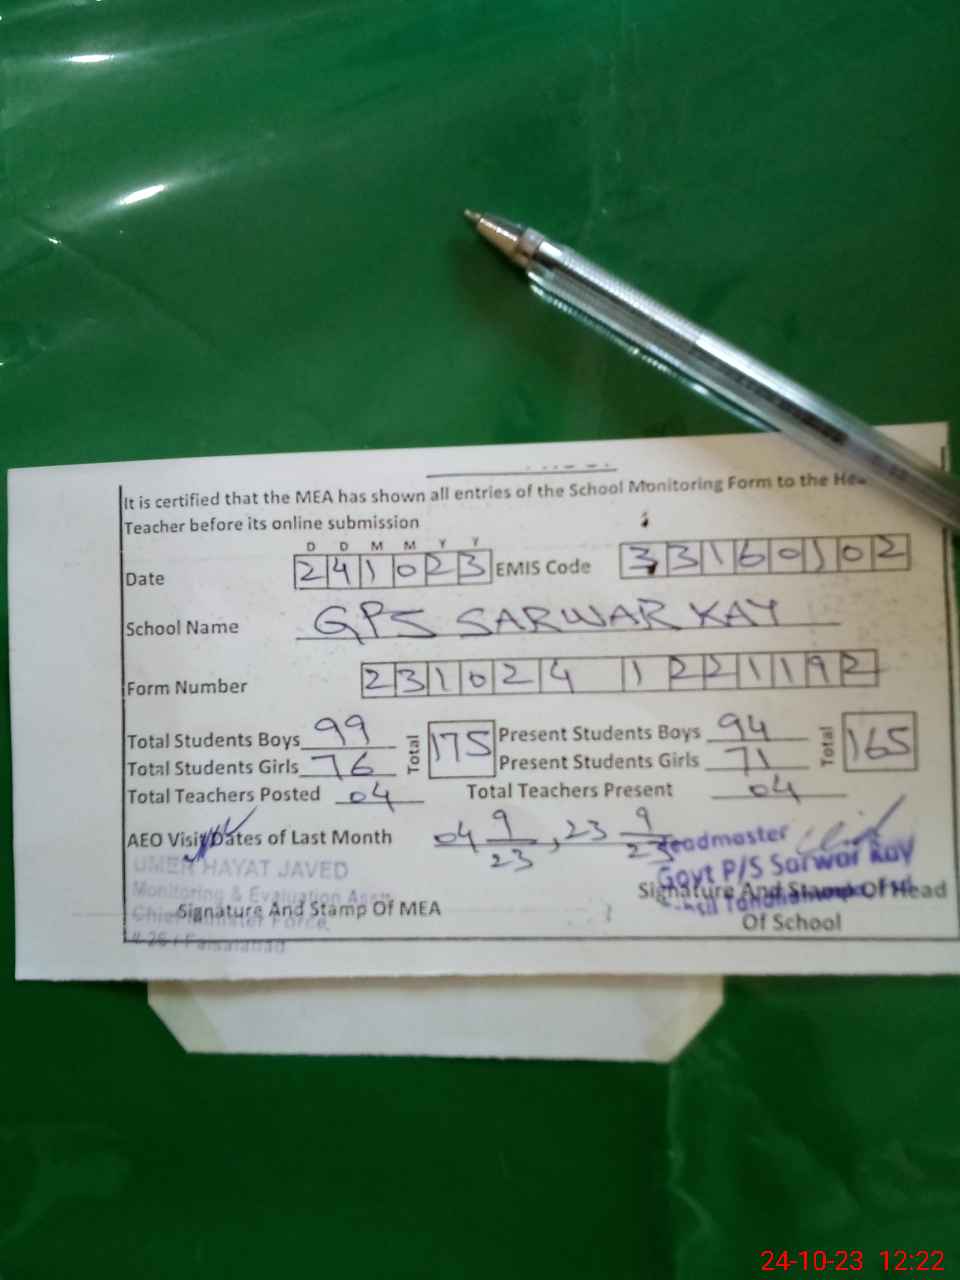 It is certified that the MEA has shown all entries of the School Monitoring Form to the
Teacher before its online submission
D D M M Y Y
Date 241023 EMIS Code 33160102
School Name GPS SARWAR KAY
Form Number 231024 1221192
Total Students Boys 99 Total 175 Present Students Boys 94 Total 165
Total Students Girls 76 Present Students Girls 71
Total Teachers Posted 04 Total Teachers Present 04
AEO Visit Dates of Last Month 04 9/23, 23 9/23
Headmaster
UMER HAYAT JAVED
Govt P/S Sarwar Kay
Monitoring & Evaluation
Signature And Stamp Of MEA
Signature And Stamp Of Head
Of School
Chief Minister Force,
Faisalabad
24-10-23 12:22